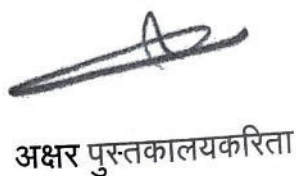 अक्षर पुस्तकालयकरिता